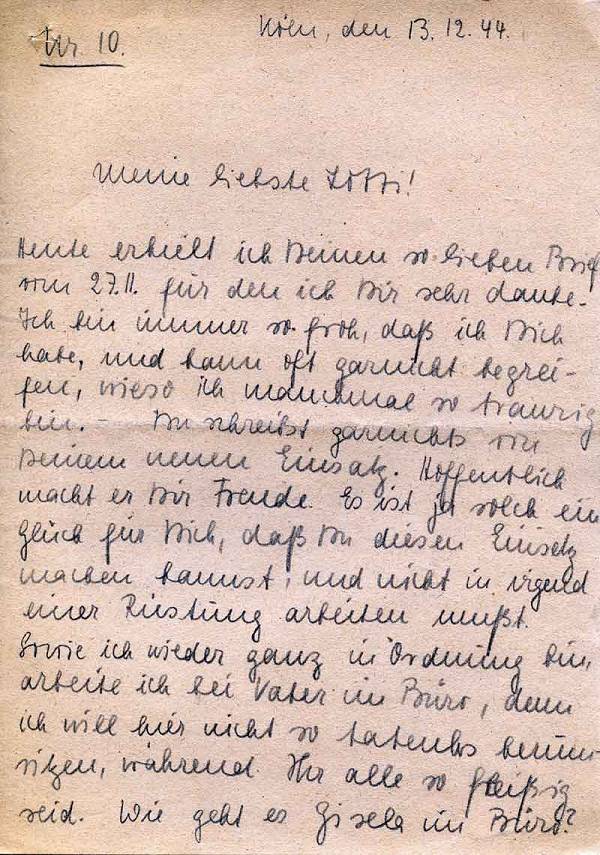 Nr. 10.
Köln, den 13.12.44.
Meine liebste Lotti!
Heute erhielt ich Deinen so lieben Brief
vom 27.11. für den ich Dir sehr danke.
Ich bin immer so froh, daß ich Dich
habe, und kann oft garnicht begrei-
fen, wieso ich manchmal so traurig
bin. – Du schreibst garnichts von
Deinem neuen Einsatz. Hoffentlich
macht er Dir Freude. Es ist ja solch ein
Glück für Dich, daß Du diesen Einsatz
machen kannst, und nicht in irgend
einer Rüstung arbeiten mußt.
Sowie ich wieder ganz in Ordnung bin,
arbeite ich bei Vater im Büro, denn
ich will hier nicht so tatenlos herum-
sitzen, während Ihr alle so fleißig
seid. Wie geht es Gisela im Büro?